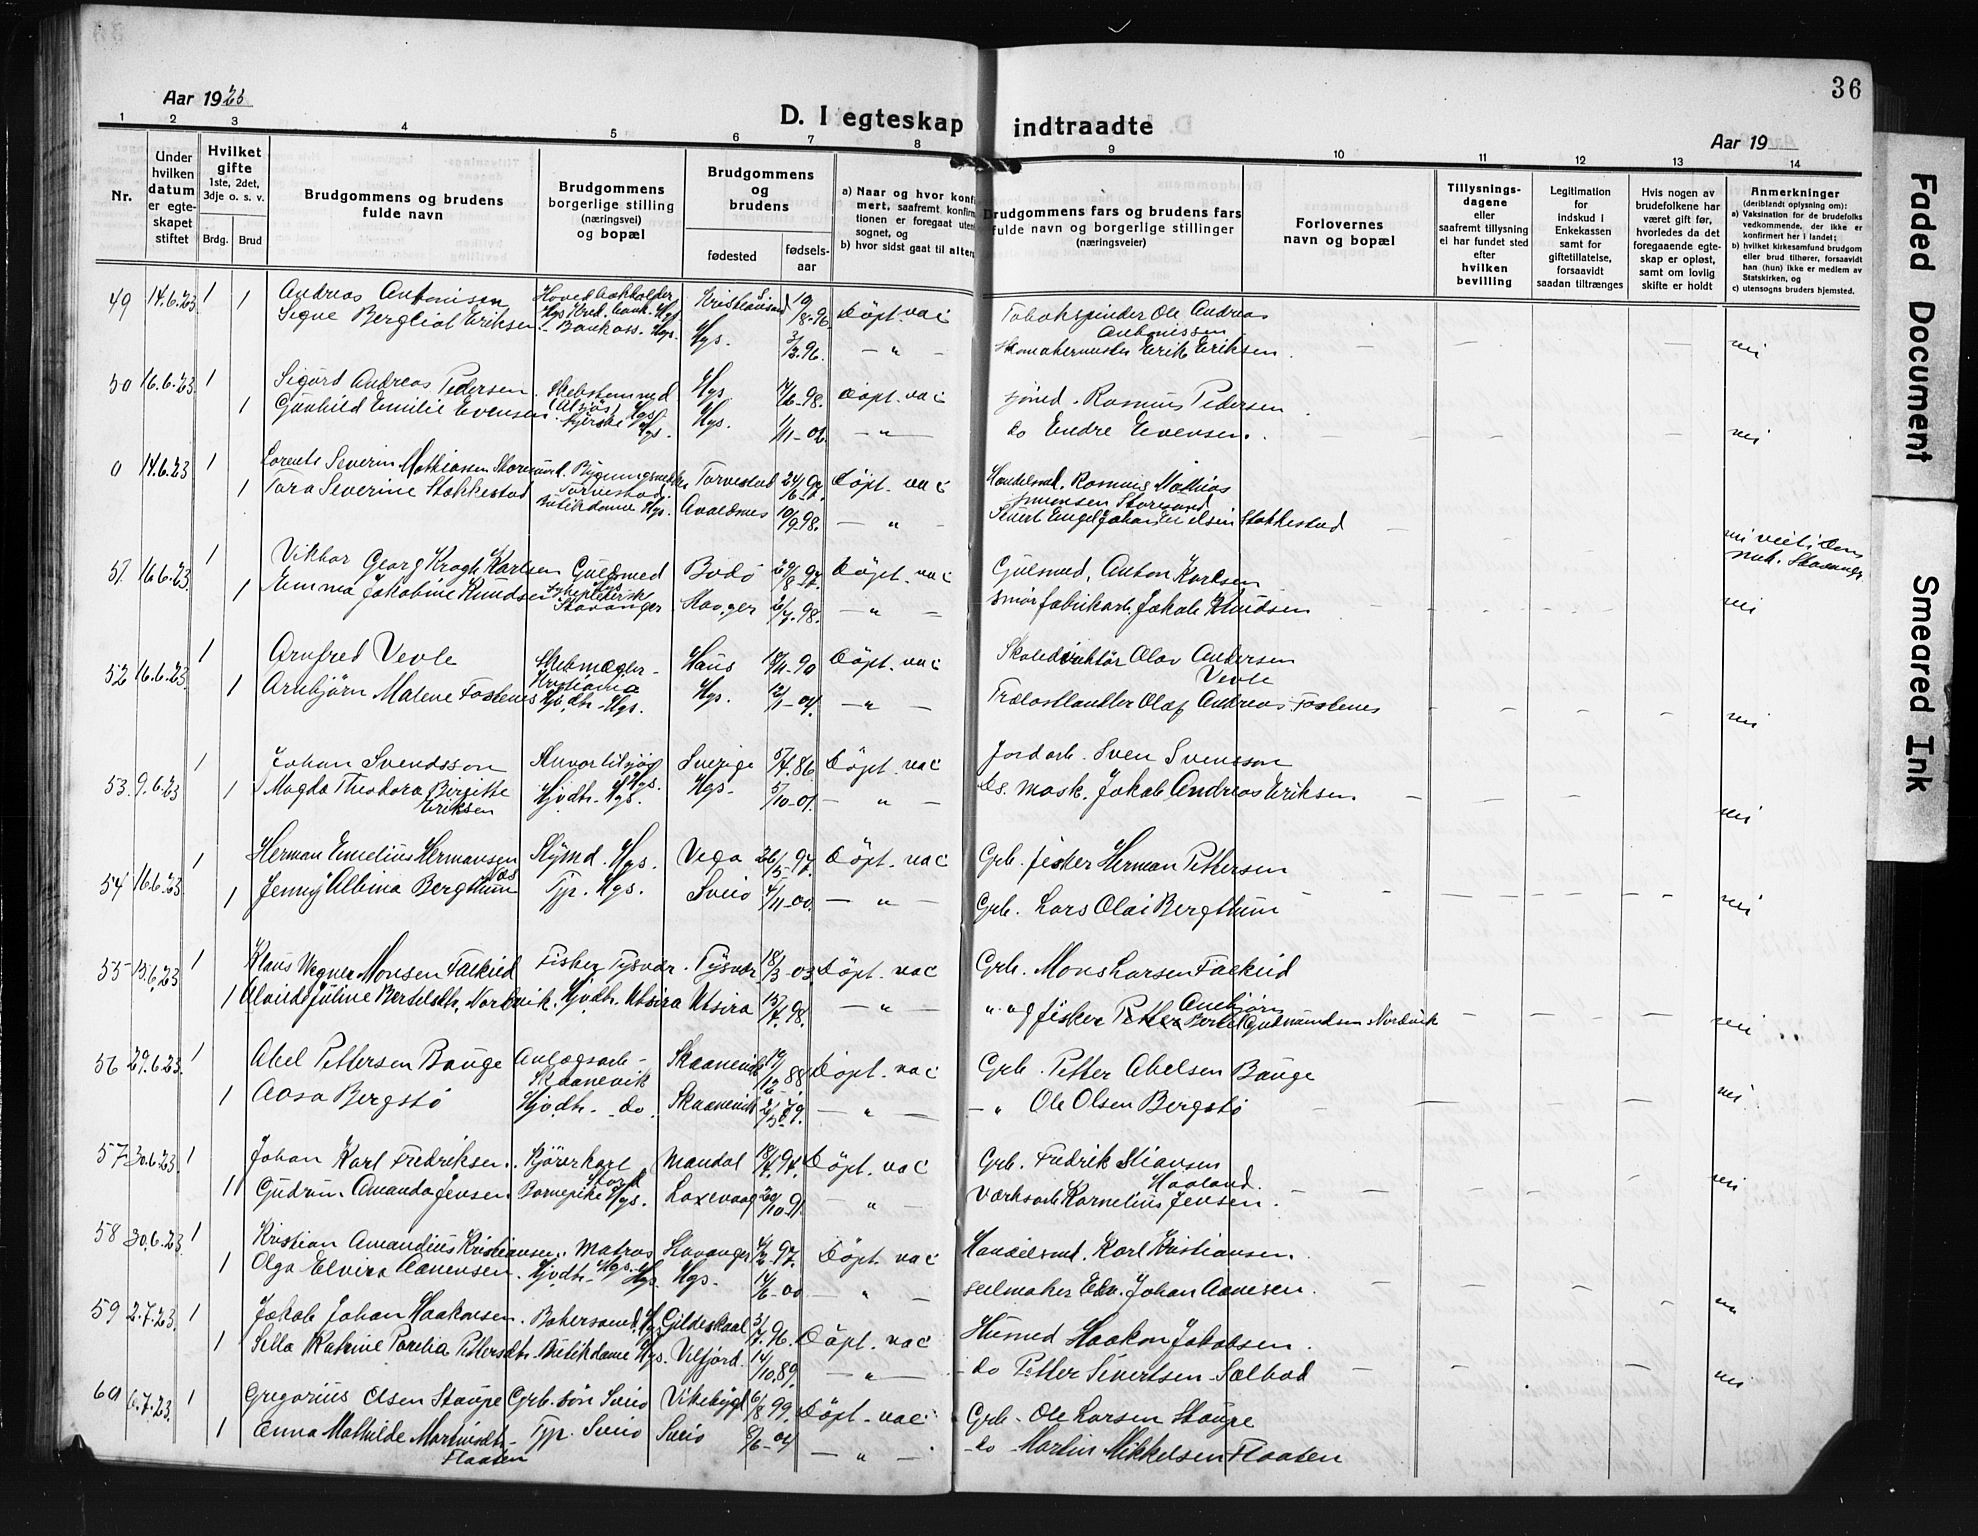 36
Aar 1923
D. I egteskap indtraadte
Aar 19
1 2 3 4 5 6 7 8 9 10 11 12 13 14
Nr.
Under hvilken datum er egteskapet stiftet
Hvilket gifte 1ste, 2det, 3dje o. s. v.
Brdg. Brud
Brudgommens og brudens fulde navn
Brudgommens borgerlige stilling (næringsvei) og bopæl
Brudgommens og brudens
fødested fødselsaar
a) Naar og hvor konfirmert, saafremt konfirmationen er foregaat utensognet, og
b) hvor sidst gaat til alters
Brudgommens fars og brudens fars fulde navn og borgerlige stillinger (næringsveier)
Forlovernes navn og bopæl
Tillysningsdagene eller saafremt tillysning ei har fundet sted efter hvilken bevilling
Legitimation for indskud i Enkekassen samt for giftetillatelse, forsaavidt saadan tiltrænges
Hvis nogen av brudefolkene har været gift før, hvorledes da det foregaaende egteskap er opløst, samt om lovlig skifte er holdt
Anmerkninger (deriblandt oplysning om):
a) Vaksination for de brudefolks vedkommende, der ikke er konfirmert her i landet;
b) hvilket kirkesamfund brudgom eller brud tilhører, forsaavidt han (hun) ikke er medlem av Statskirken, og
c) utensogns bruders hjemsted.
49 14.6.23 1 Andreas Antonisen Hovedbokholder Hgs Kred. bank. Hgs Kristiansand 19/8-96 Døpt. vac Tobakspinder Ole Andreas Antonissen
1 Signe Bergliot Eriksen Bankass. Hgs. Hgs. 3/3.96. — " — Skomakermester Erik Eriksen. nei
50 16.6.23 1 Sigurd Andreas Pedersen Hgs 98. Døpt. vac Rasmus Pedersen
1 Gunhild Emilie Evensen Hgs. Hgs. 1/11-02 — " — do Endre Evensen. nei
0 14.6.23 1 Lorents Severin Mathiassen Storesund. Torvestad. Torvestad 24/6-97 Døpt. vac Handelsmd. Rasmus Mathias Simonsen Storesund
1 Tora Severine Stakkestad Butikdame Hgs. Avaldsnes 10/9 98. — " — Sivert Engel Johan Stakkestad
51 16.6.23 1 Viktor Georg Krogh Karlsen Guldsmed Hgs Bodø 29/8-97. Døpt. vac Gulsmed. Anton Karlsen
1 Emma Jakobine Knudsen Sykepleierske Stavanger Stav.ger 98. — " — Smørfabrikarb. Jakob Knudsen nei
52 16.6.23 1 Arnfred Vevle Skibsmægler Kristiania Haus 90 Døpt. vac Skoledirektør Olav Andersen Vevle
1 Arnbjørn Malene Fosenes Hjvdtr. Hgs. Hgs. 12/1-04. — " — Trælasthandler Olaf Andreas Fosenes nei
53. 9.6.23 1 Johan Svendsson Hgs. Sverige 5/4.86. Døpt. vac Jordarb. Sven Svensson
1 Magda Theodora Birgitte Eriksen Hjvdtr. Hgs. Hgs. 5/10-01. — " — Ds. mask. Jakob Andreas Eriksen. nei
54 16.6.23 1 Herman Emelius Hermansen Næs Stymd. Hgs. Vega 26/5-97. Døpt. vac Grb. fisker Herman Pettersen
1 Jenny Albina Bergthun Typ. Hgs. Sveio 4/11-00. — " — Grb. Lars Olai Bergthun nei
55 15.6.23 1 Klaus Wegner Monsen Falkeid Fisker Tysvær. Tysvær 18/3-03. Døpt. vac Grb. Mons Larsen Falkeid
1 Alvilde Juline Bertelsdtr. Nordvik. Hjvdtr. Utsira Utsira 15/7.98. — " — " og fisker Petter Arnbjørn Bertel Gudmundsen Nordvik nei
56 29.6.23. 1 Abel Pettersen Bauge Anlægsarb. Skaanevik Skaanevik 19/12-88 Døpt. vac Grb. Petter Abelsen Bauge
1 Aasa Bergstø Hjvdtr. do. Skaanevik — " — — " Ole Olsen Bergstø nei
57 30.6.23. 1 Johan Karl Fredriksen. Kjørerkarl Stord Mandal 18/4.94. Døpt. vac Grb. Fredrik Stiansen Haaland.
1 Gudrun Amanda Jensen Barnepike Hgs. Laxevaag 29/10-91 — " — Værksarb Kornelius Jensen. nei
58 30.6.23. 1 Kristian Amandius Kristiansen. Matros Hgs. Stavanger 4/2-97. Døpt. vac Handelsmd. Karl Kristiansen.
1 Olga Elvira Aanensen. Hjvdtr. Hgs. Hgs. 14/6-00 — " — Seilmaker Edv. Johan Aanesen.
59 2.7.23. 1 Jakob Johan Haakonsen. Bakersvend. Hgs Gildeskaal 31/7.96. Døpt. vac Husmd Haakon Jakobsen.
1 Sella Katrine Parelia Pettersdtr. Butikdame Hgs. Velfjord. 14/10.89. — " — do Petter Sivertsen Sælbod nei
60 6.7.23. 1 Gregorius Olsen Staupe Grb. søn Sveio Vikebygd 6/8 99. Døpt. vac Grb. Ole Larsen Staupe
1 Anna Mathilde Martinsdtr. Flaaten Typ. Sveio Sveio 8/6-04 — " — do Martin Mikkelsen Flaaten
Faded Document
Smeared Ink